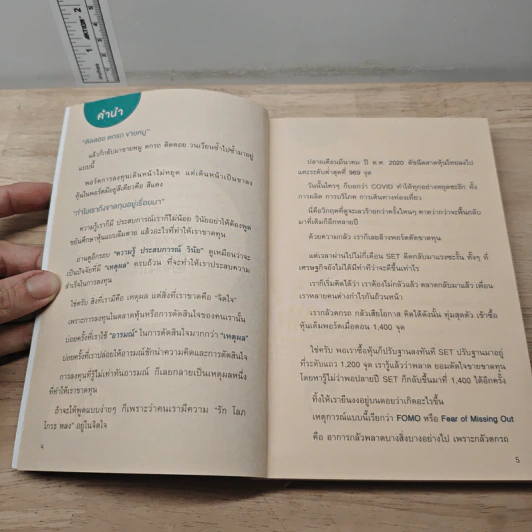 คำนำ
"ติดดอย ตกรถ ขายหมู"
แล้วก็กลับมาขายหมู ตกรถ ติดดอย วนเวียนซ้ำไปซ้ำมาอยู่
แบบนี้
พอร์ตการลงทุนเดินหน้าไม่หยุด แต่เดินหน้าเป็นขาลง
หุ้นในพอร์ตมีอยู่สีเดียวคือ สีแดง
"ทำไมเราถึงขาดทุนอยู่เรื่อยมา"
ความรู้เราก็มี ประสบการณ์เราก็ไม่น้อย วินัยอย่าให้ต้องพูด
ขยันศึกษาหุ้นแบบลืมตาย แล้วอะไรที่ทำให้เราขาดทุน
อ่านดูอีกรอบ "ความรู้ ประสบการณ์ วินัย" ดูเหมือนว่าจะ
เป็นปัจจัยที่มี "เหตุผล" ครบถ้วน ที่จะทำให้เราประสบความ
สำเร็จในการลงทุน
ใช่ครับ สิ่งที่เรามีคือ เหตุผล แต่สิ่งที่เราขาดคือ "จิตใจ"
เพราะการลงทุนในตลาดหุ้นหรือการตัดสินใจของคนเรานั้น
บ่อยครั้งที่เราใช้ "อารมณ์" ในการตัดสินใจมากกว่า "เหตุผล"
บ่อยครั้งที่เราปล่อยให้อารมณ์ชักนำความคิดและการตัดสินใจ
การลงทุนที่รู้ไม่เท่าทันอารมณ์ ก็เลยกลายเป็นเหตุผลหนึ่ง
ที่ทำให้เราขาดทุน
ถ้าจะให้พูดแบบง่ายๆ ก็เพราะว่าคนเรามีความ "รัก โลภ
โกรธ หลง" อยู่ในจิตใจ
4
ปลายเดือนมีนาคม ปี ค.ศ. 2020 ดัชนีตลาดหุ้นไทยลงไป
แตะระดับต่ำสุดที่ 969 จุด
วันนั้นใครๆ ก็บอกว่า COVID ทำให้ทุกอย่างหยุดชะงัก ทั้ง
การผลิต การบริโภค การเดินทางท่องเที่ยว
นี่คือวิกฤตที่ดูจะเลวร้ายกว่าครั้งไหนๆ คาดว่ากว่าจะฟื้นกลับ
มาที่เดิมก็อีกหลายปี
ด้วยความกลัว เราก็เลยล้างพอร์ตตัดขาดทุน
แต่เวลาผ่านไปไม่กี่เดือน SET ดีดกลับมาแรงซะงั้น ทั้งๆ ที่
เศรษฐกิจยังไม่ได้มีท่าทีว่าจะดีขึ้นเท่าไร
เราก็เริ่มคิดได้ว่า เราต้องไม่กลัวแล้ว ตลาดกลับมาแล้ว เพื่อน
เราหลายคนต่างกำไรกันถ้วนหน้า
เรากลัวตกรถ กลัวเสียโอกาส คิดได้ดังนั้น ทุ่มสุดตัว เข้าซื้อ
หุ้นเต็มพอร์ตเมื่อตอน 1,400 จุด
ใช่ครับ พอเราซื้อหุ้นก็ปรับฐานลงทันที SET ปรับฐานมาอยู่
ที่ระดับแถว 1,200 จุด เรารู้แล้วว่าพลาด ยอมตัดใจขายขาดทุน
โดยหารู้ไม่ว่าพอปลายปี SET ก็กลับขึ้นมาที่ 1,400 ได้อีกครั้ง
ทั้งให้เรายืนงงอยู่บนดอยว่าเกิดอะไรขึ้น
เหตุการณ์แบบนี้เรียกว่า FOMO หรือ Fear of Missing Out
คือ อาการกลัวพลาดบางสิ่งบางอย่างไป เพราะกลัวตกรถ
5